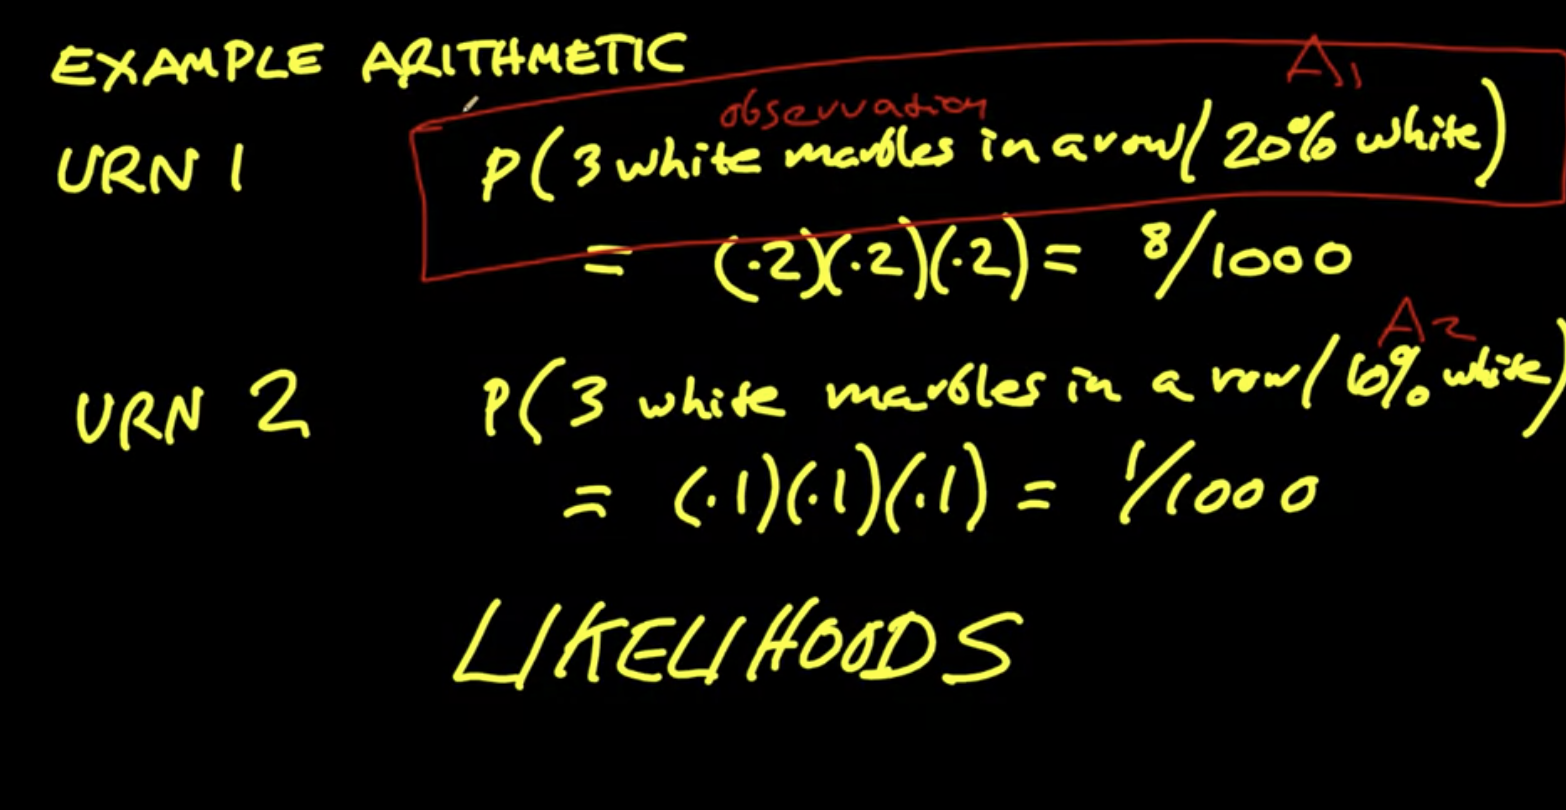 EXAMPLE ARITHMETIC
A1
observation
URN 1 P(3 white marbles in a row/20% white)
= (.2)(.2)(.2) = 8/1000
A2
URN 2 P(3 white marbles in a row/10% white)
= (.1)(.1)(.1) = 1/1000
LIKELIHOODS